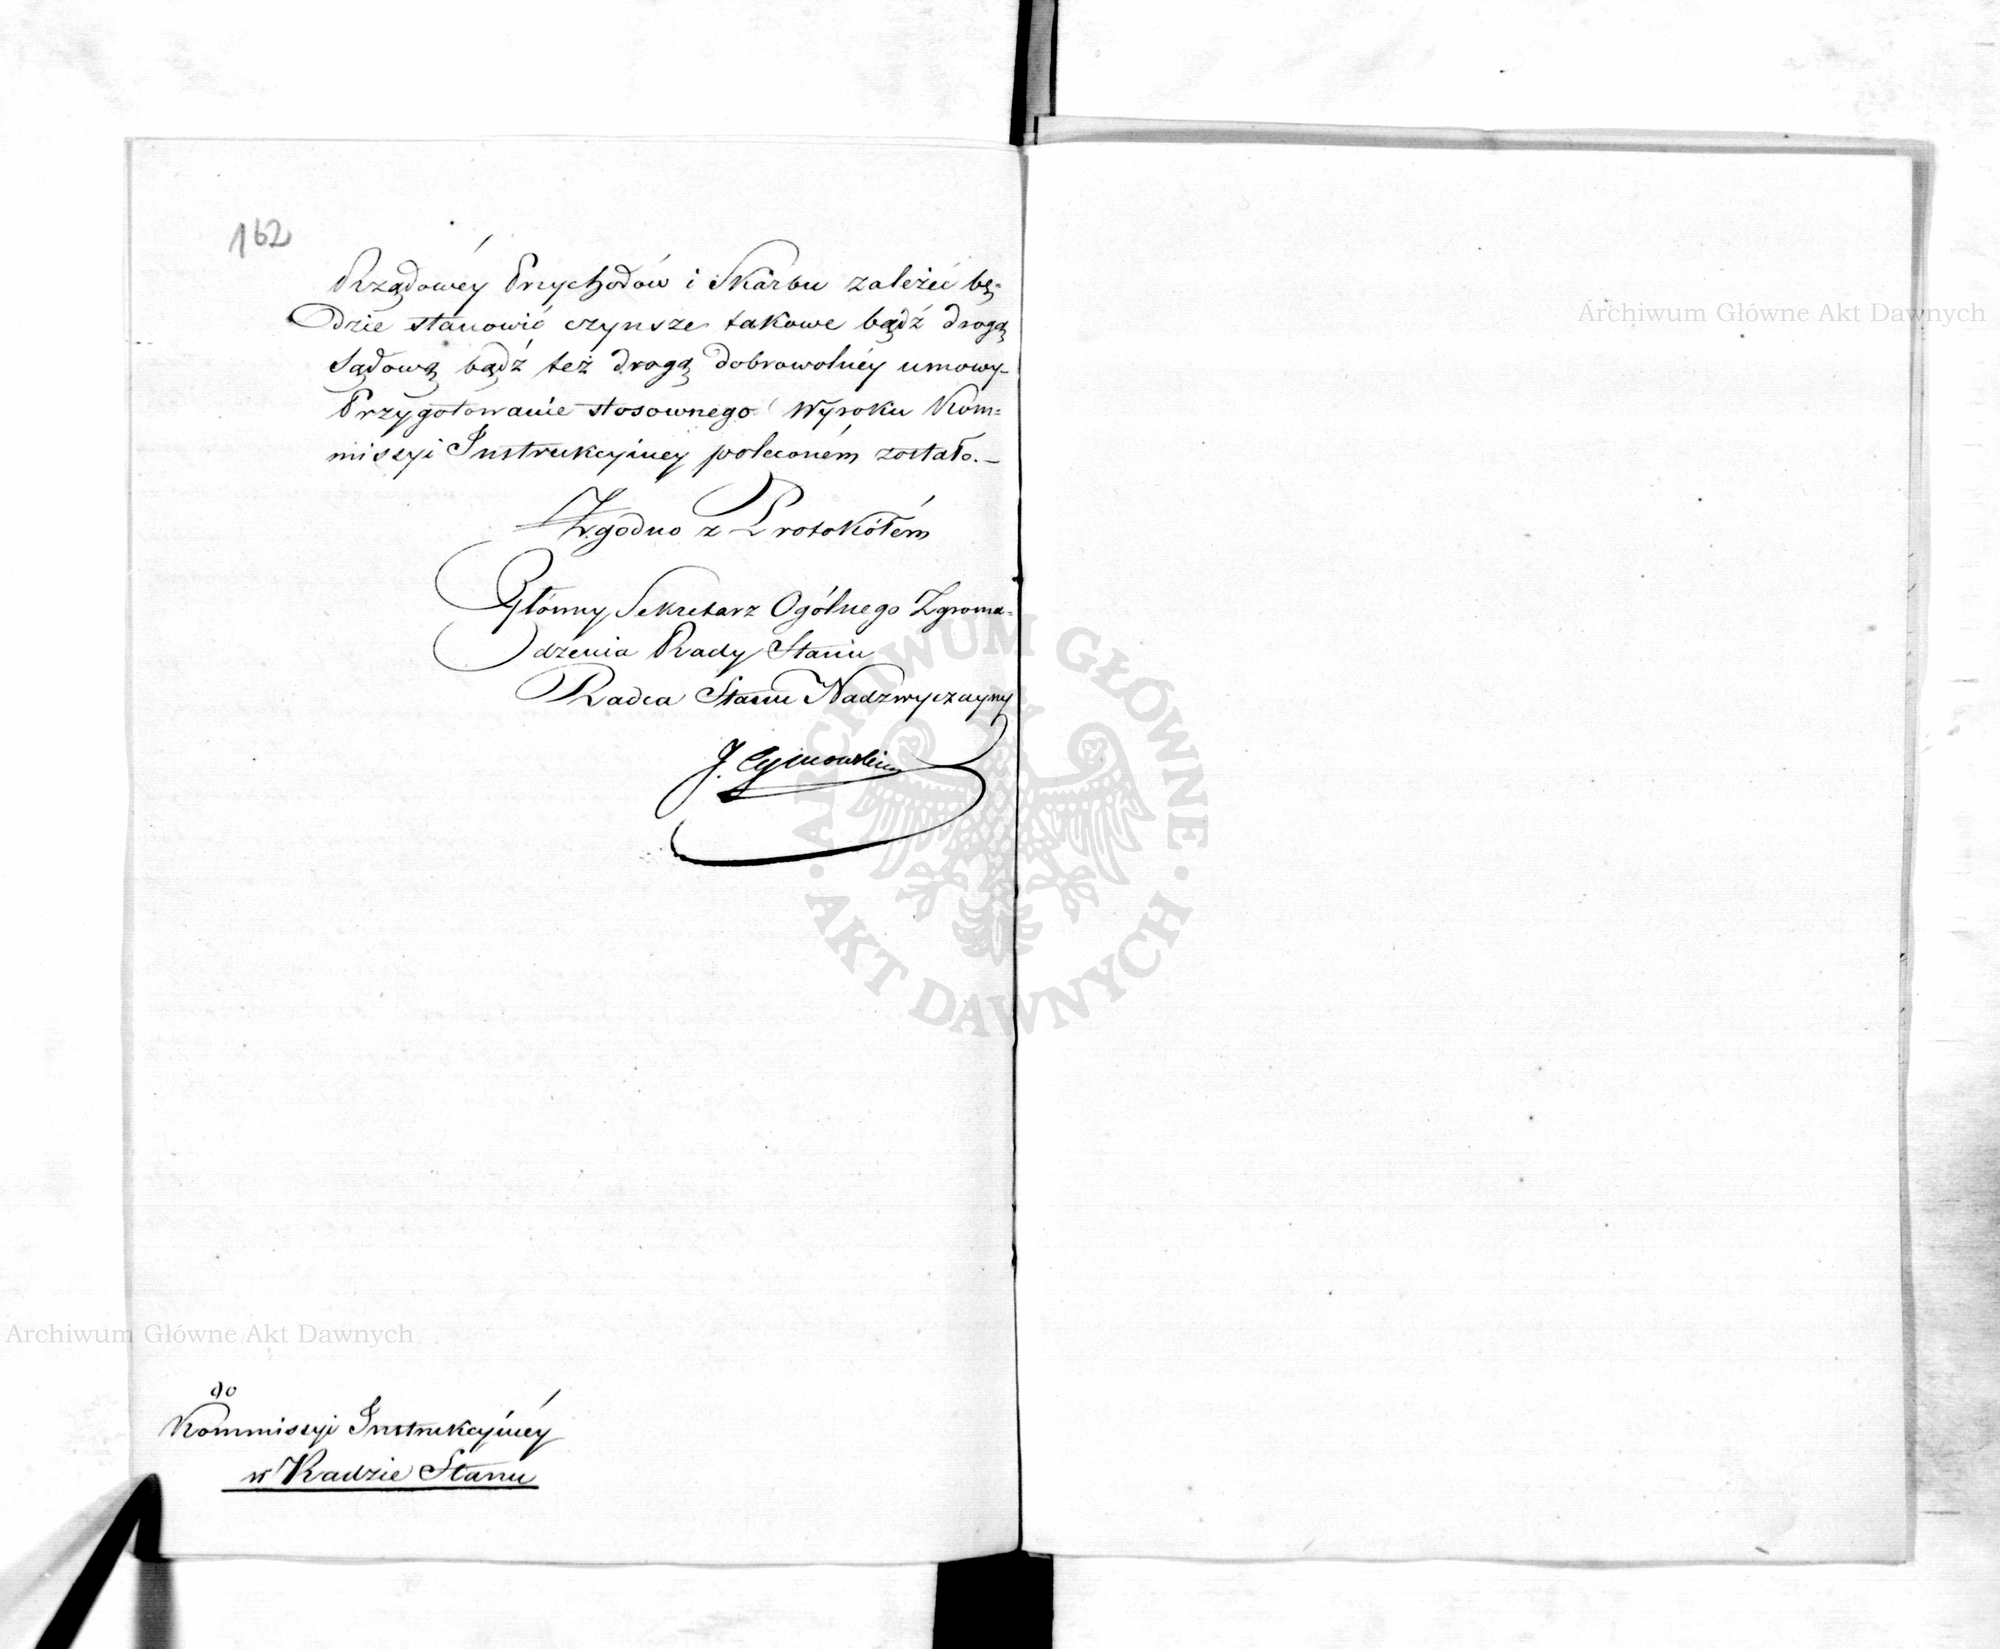 162
Rządowéy Przychodów i Skarbu zależeć bę=
dzie stanowić czynsze takowe bądź drogą
Sądową bądź też drogą dobrowolnéy umowy_
Przygotowanie stosownego Wyroku Kom=
missyi Instrukcyinéy poleconém zostało._
Zgodno z Protokółém
Główny Sekretarz Ogólnego Zgroma=
dzenia Rady Stanu
Radca Stanu Nadzwyczayny
J.
do
Kommissyi Instrukcyinéy
w Radzie Stanu
Archiwum Główne Akt Dawnych
Archiwum Główne Akt Dawnych
ARCHIWUM GŁÓWNE
AKT DAWNYCH